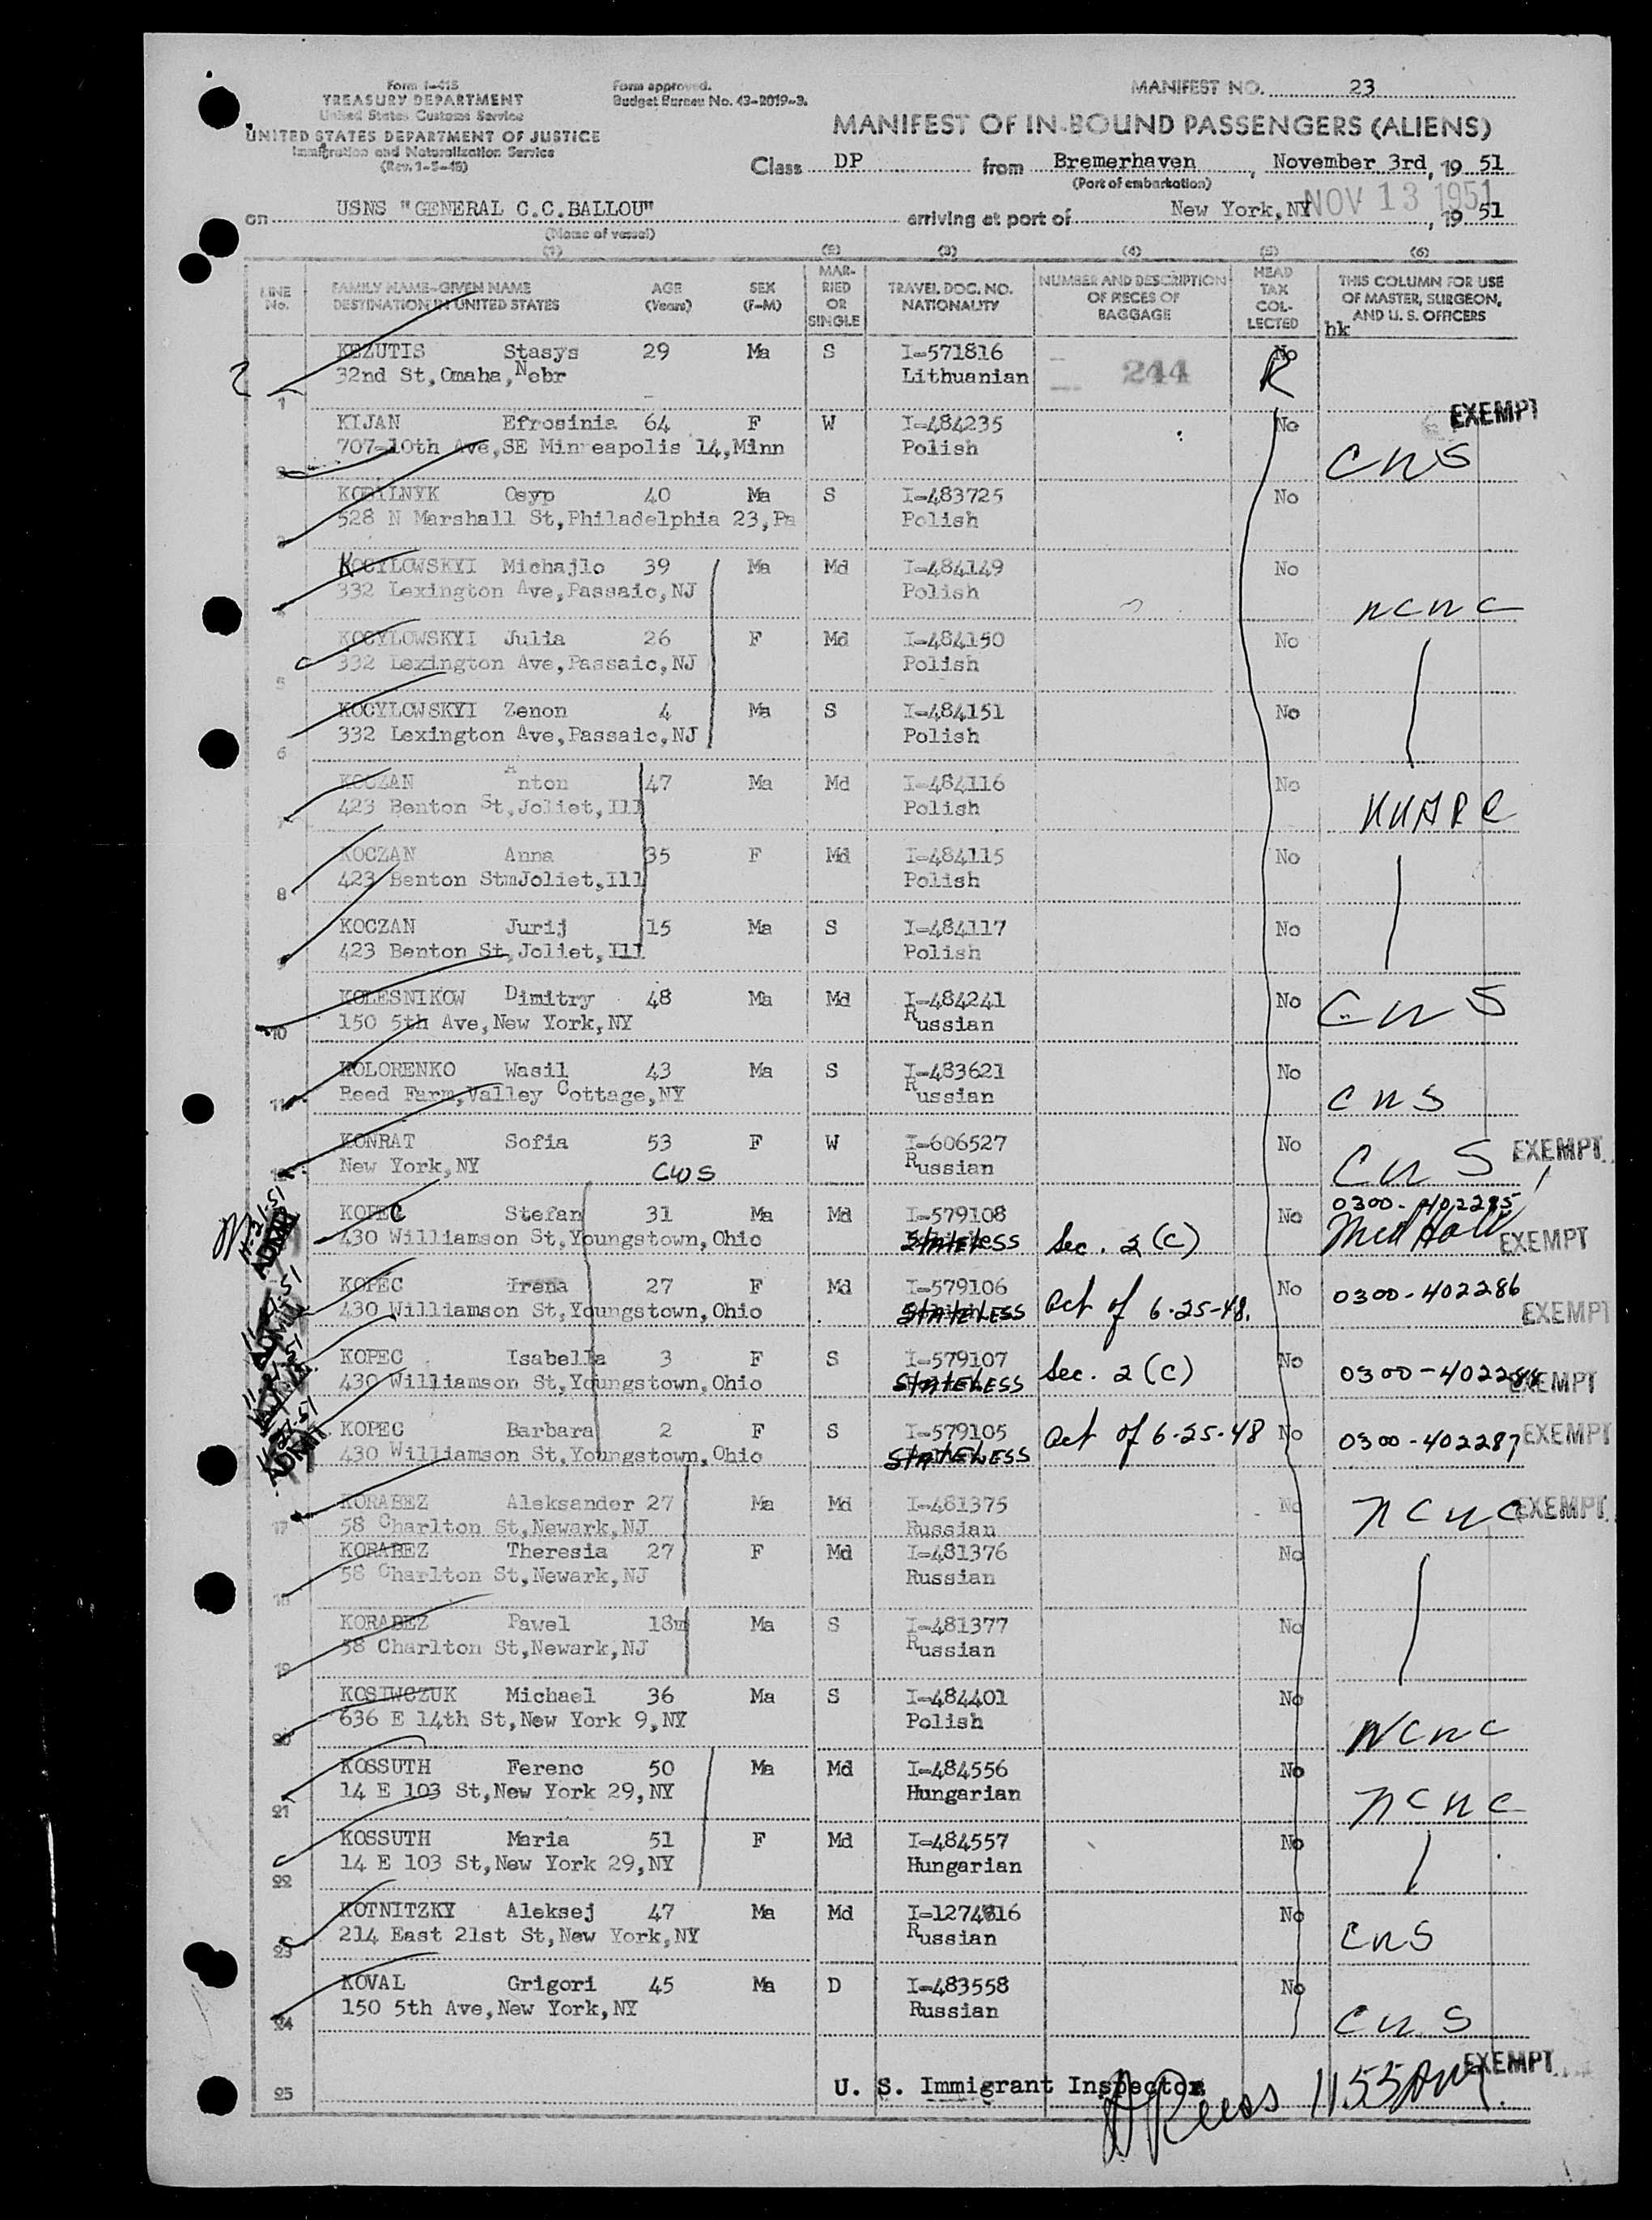 Form I-415
TREASURY DEPARTMENT
United States Customs Service
UNITED STATES DEPARTMENT OF JUSTICE
Immigration and Naturalization Service
(Rev. 1-5-48)
Form approved.
Budget Bureau No. 43-R019-3.
MANIFEST NO. 23
MANIFEST OF IN-BOUND PASSENGERS (ALIENS)
Class DP from Bremerhaven, November 3rd, 19 51
(Port of embarkation)
on USNS "GENERAL C.C.BALLOU" arriving at port of New York,NY NOV 13 1951, 19 51
(Name of vessel)
(1) (2) (3) (4) (5) (6)
LINE No. FAMILY NAME-GIVEN NAME DESTINATION IN UNITED STATES AGE (Years) SEX (F-M) MARRIED OR SINGLE TRAVEL DOC. NO. NATIONALITY NUMBER AND DESCRIPTION OF PIECES OF BAGGAGE HEAD TAX COLLECTED THIS COLUMN FOR USE OF MASTER, SURGEON, AND U. S. OFFICERS
hk
KEZUTIS Stasys 29 Ma S I-571816 244 No
1 32nd St,Omaha,Nebr Lithuanian R
KIJAN Efrosinia 64 F W I-484235 No EXEMPT
2 707-10th Ave,SE Minneapolis 14,Minn Polish CNS
KOBILNYK Osyp 40 Ma S I-483725 No
3 528 N Marshall St,Philadelphia 23,Pa Polish
KOCYLOWSKYI Michajlo 39 Ma Md I-484149 No
4 332 Lexington Ave,Passaic,NJ Polish NCNC
KOCYLOWSKYI Julia 26 F Md I-484150 No
5 332 Lexington Ave,Passaic,NJ Polish
KOCYLOWSKYI Zenon 4 Ma S I-484151 No
6 332 Lexington Ave,Passaic,NJ Polish
KOCZAN Anton 47 Ma Md I-484116 No
7 423 Benton St,Joliet,Ill Polish
KOCZAN Anna 35 F Md I-484115 No
8 423 Benton StmJoliet,Ill Polish
KOCZAN Jurij 15 Ma S I-484117 No
9 423 Benton St,Joliet,Ill Polish
KOLESNIKOW Dimitry 48 Ma Md I-484241 No CNS
10 150 5th Ave,New York,NY Russian
KOLORENKO Wasil 43 Ma S I-483621 No
11 Reed Farm,Valley Cottage,NY Russian CNS
KONRAT Sofia 53 F W I-606527 No EXEMPT
12 New York,NY CWS Russian CNS
KOPEC Stefan 31 Ma Md I-579108 No 0300-402285
430 Williamson St,Youngstown,Ohio STATELESS Sec. 2(C) Med Hold EXEMPT
ADMIT 11-21-51
KOPEC Irena 27 F Md I-579106 No 0300-402286
430 Williamson St,Youngstown,Ohio STATELESS Act of 6-25-48. EXEMPT
KOPEC Isabella 3 F S I-579107 Sec. 2(C) No 0300-402288 EXEMPT
430 Williamson St,Youngstown,Ohio STATELESS
KOPEC Barbara 2 F S I-579105 Act of 6-25-48 No 0300-402287 EXEMPT
430 Williamson St,Youngstown,Ohio STATELESS
ADMIT
KORABEZ Aleksander 27 Ma Md I-481375 No NCNC EXEMPT
17 58 Charlton St,Newark,NJ Russian
KORABEZ Theresia 27 F Md I-481376 No
18 58 Charlton St,Newark,NJ Russian
KORABEZ Pawel 18m Ma S I-481377 No
19 58 Charlton St,Newark,NJ Russian
KOSIWCZUK Michael 36 Ma S I-484401 No
20 636 E 14th St,New York 9,NY Polish NCNC
KOSSUTH Ferenc 50 Ma Md I-484556 No
21 14 E 103 St,New York 29,NY Hungarian NCNC
KOSSUTH Maria 51 F Md I-484557 No
22 14 E 103 St,New York 29,NY Hungarian
KOTNITZKY Aleksej 47 Ma Md I-1274816 No
23 214 East 21st St,New York,NY Russian CNS
KOVAL Grigori 45 Ma D I-483558 No
24 150 5th Ave,New York,NY Russian CNS
EXEMPT
25 U. S. Immigrant Inspector 1155AM